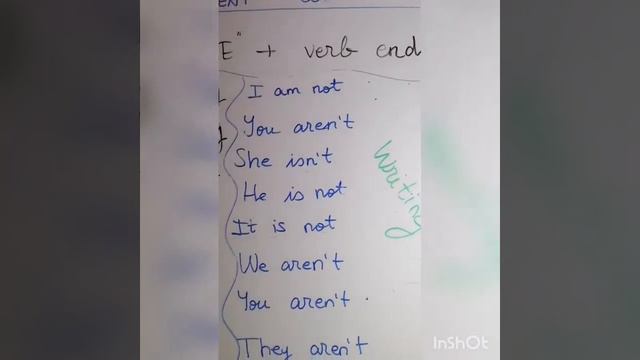 E" + verb end
I am not
You aren't
She isn't
He is not
It is not
We aren't
You aren't.
They aren't
Writing
InShOt